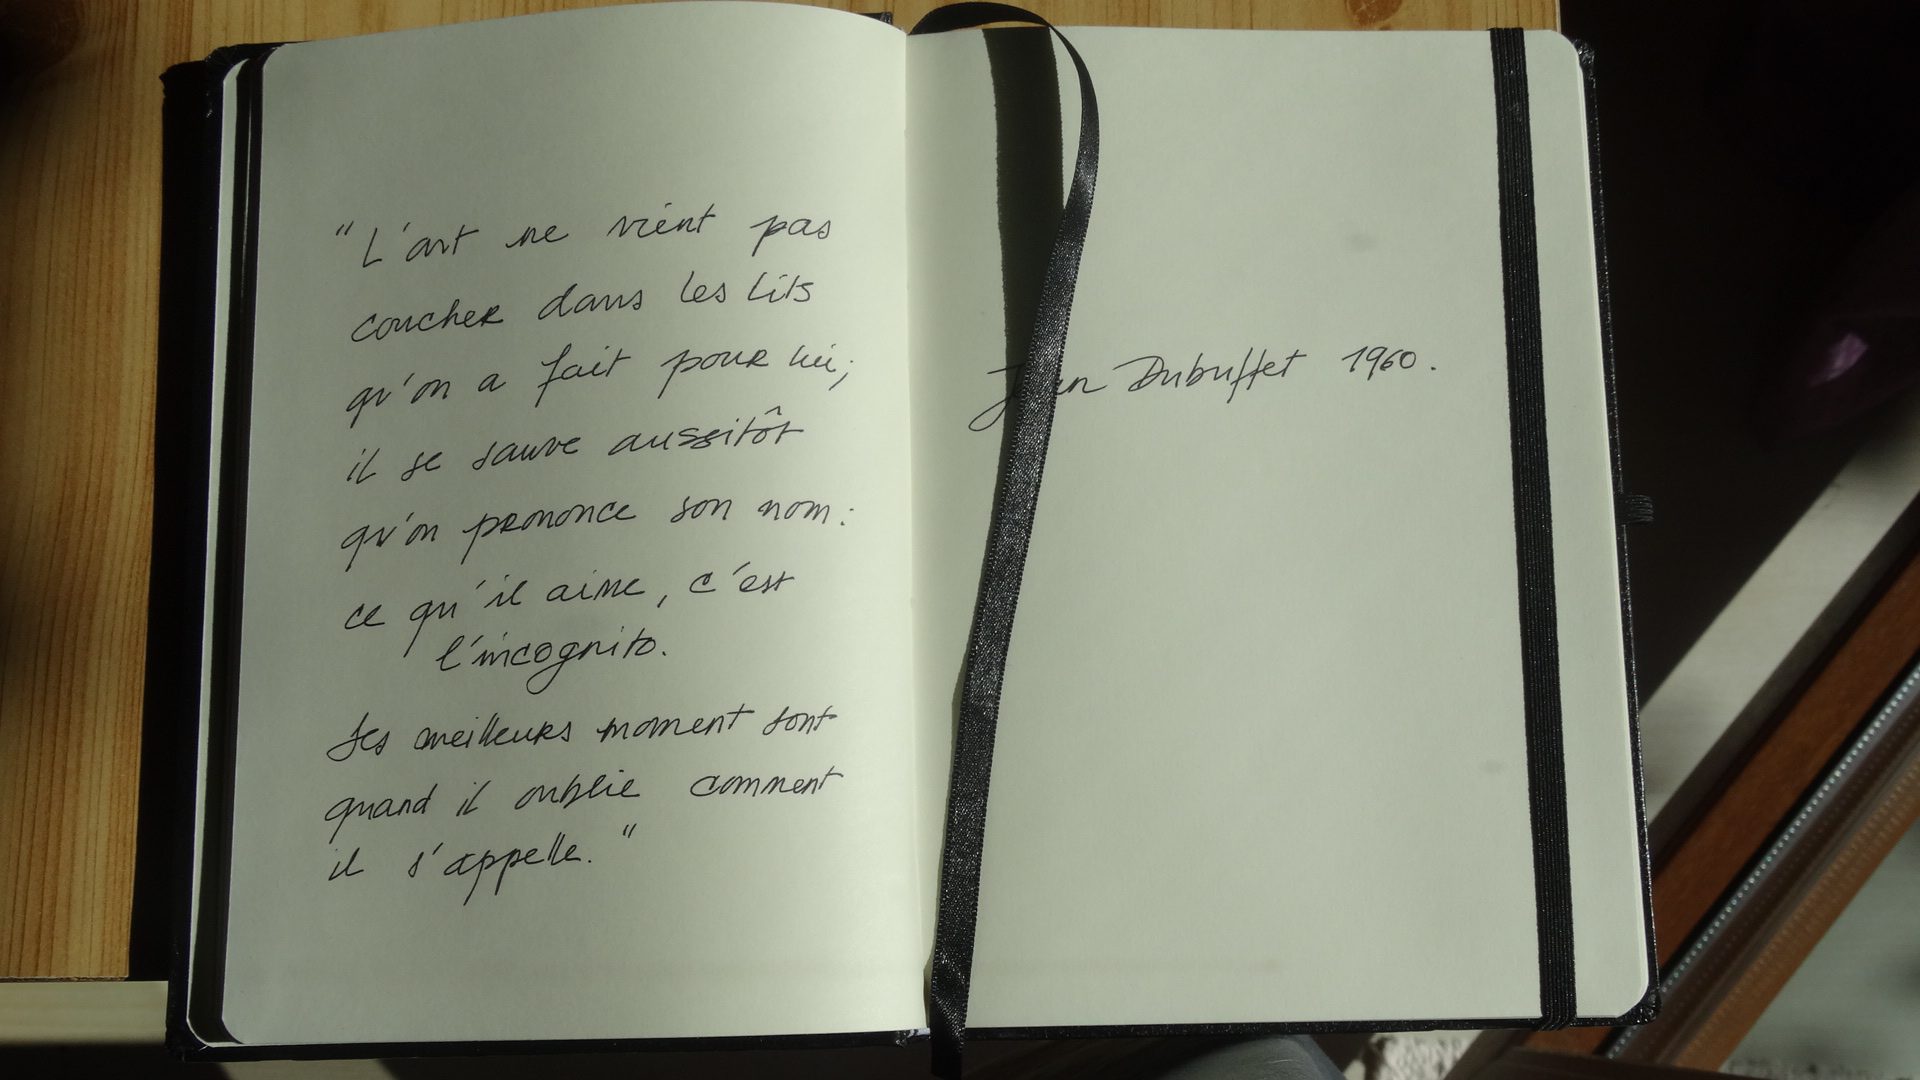 "L'art ne vient pas
coucher dans les lits
qu'on a fait pour lui;
il se sauve aussitôt
qu'on prononce son nom:
ce qu'il aime, c'est
l'incognito.
Ses meilleurs moment sont
quand il oublie comment
il s'appelle."
Jean Dubuffet 1960.